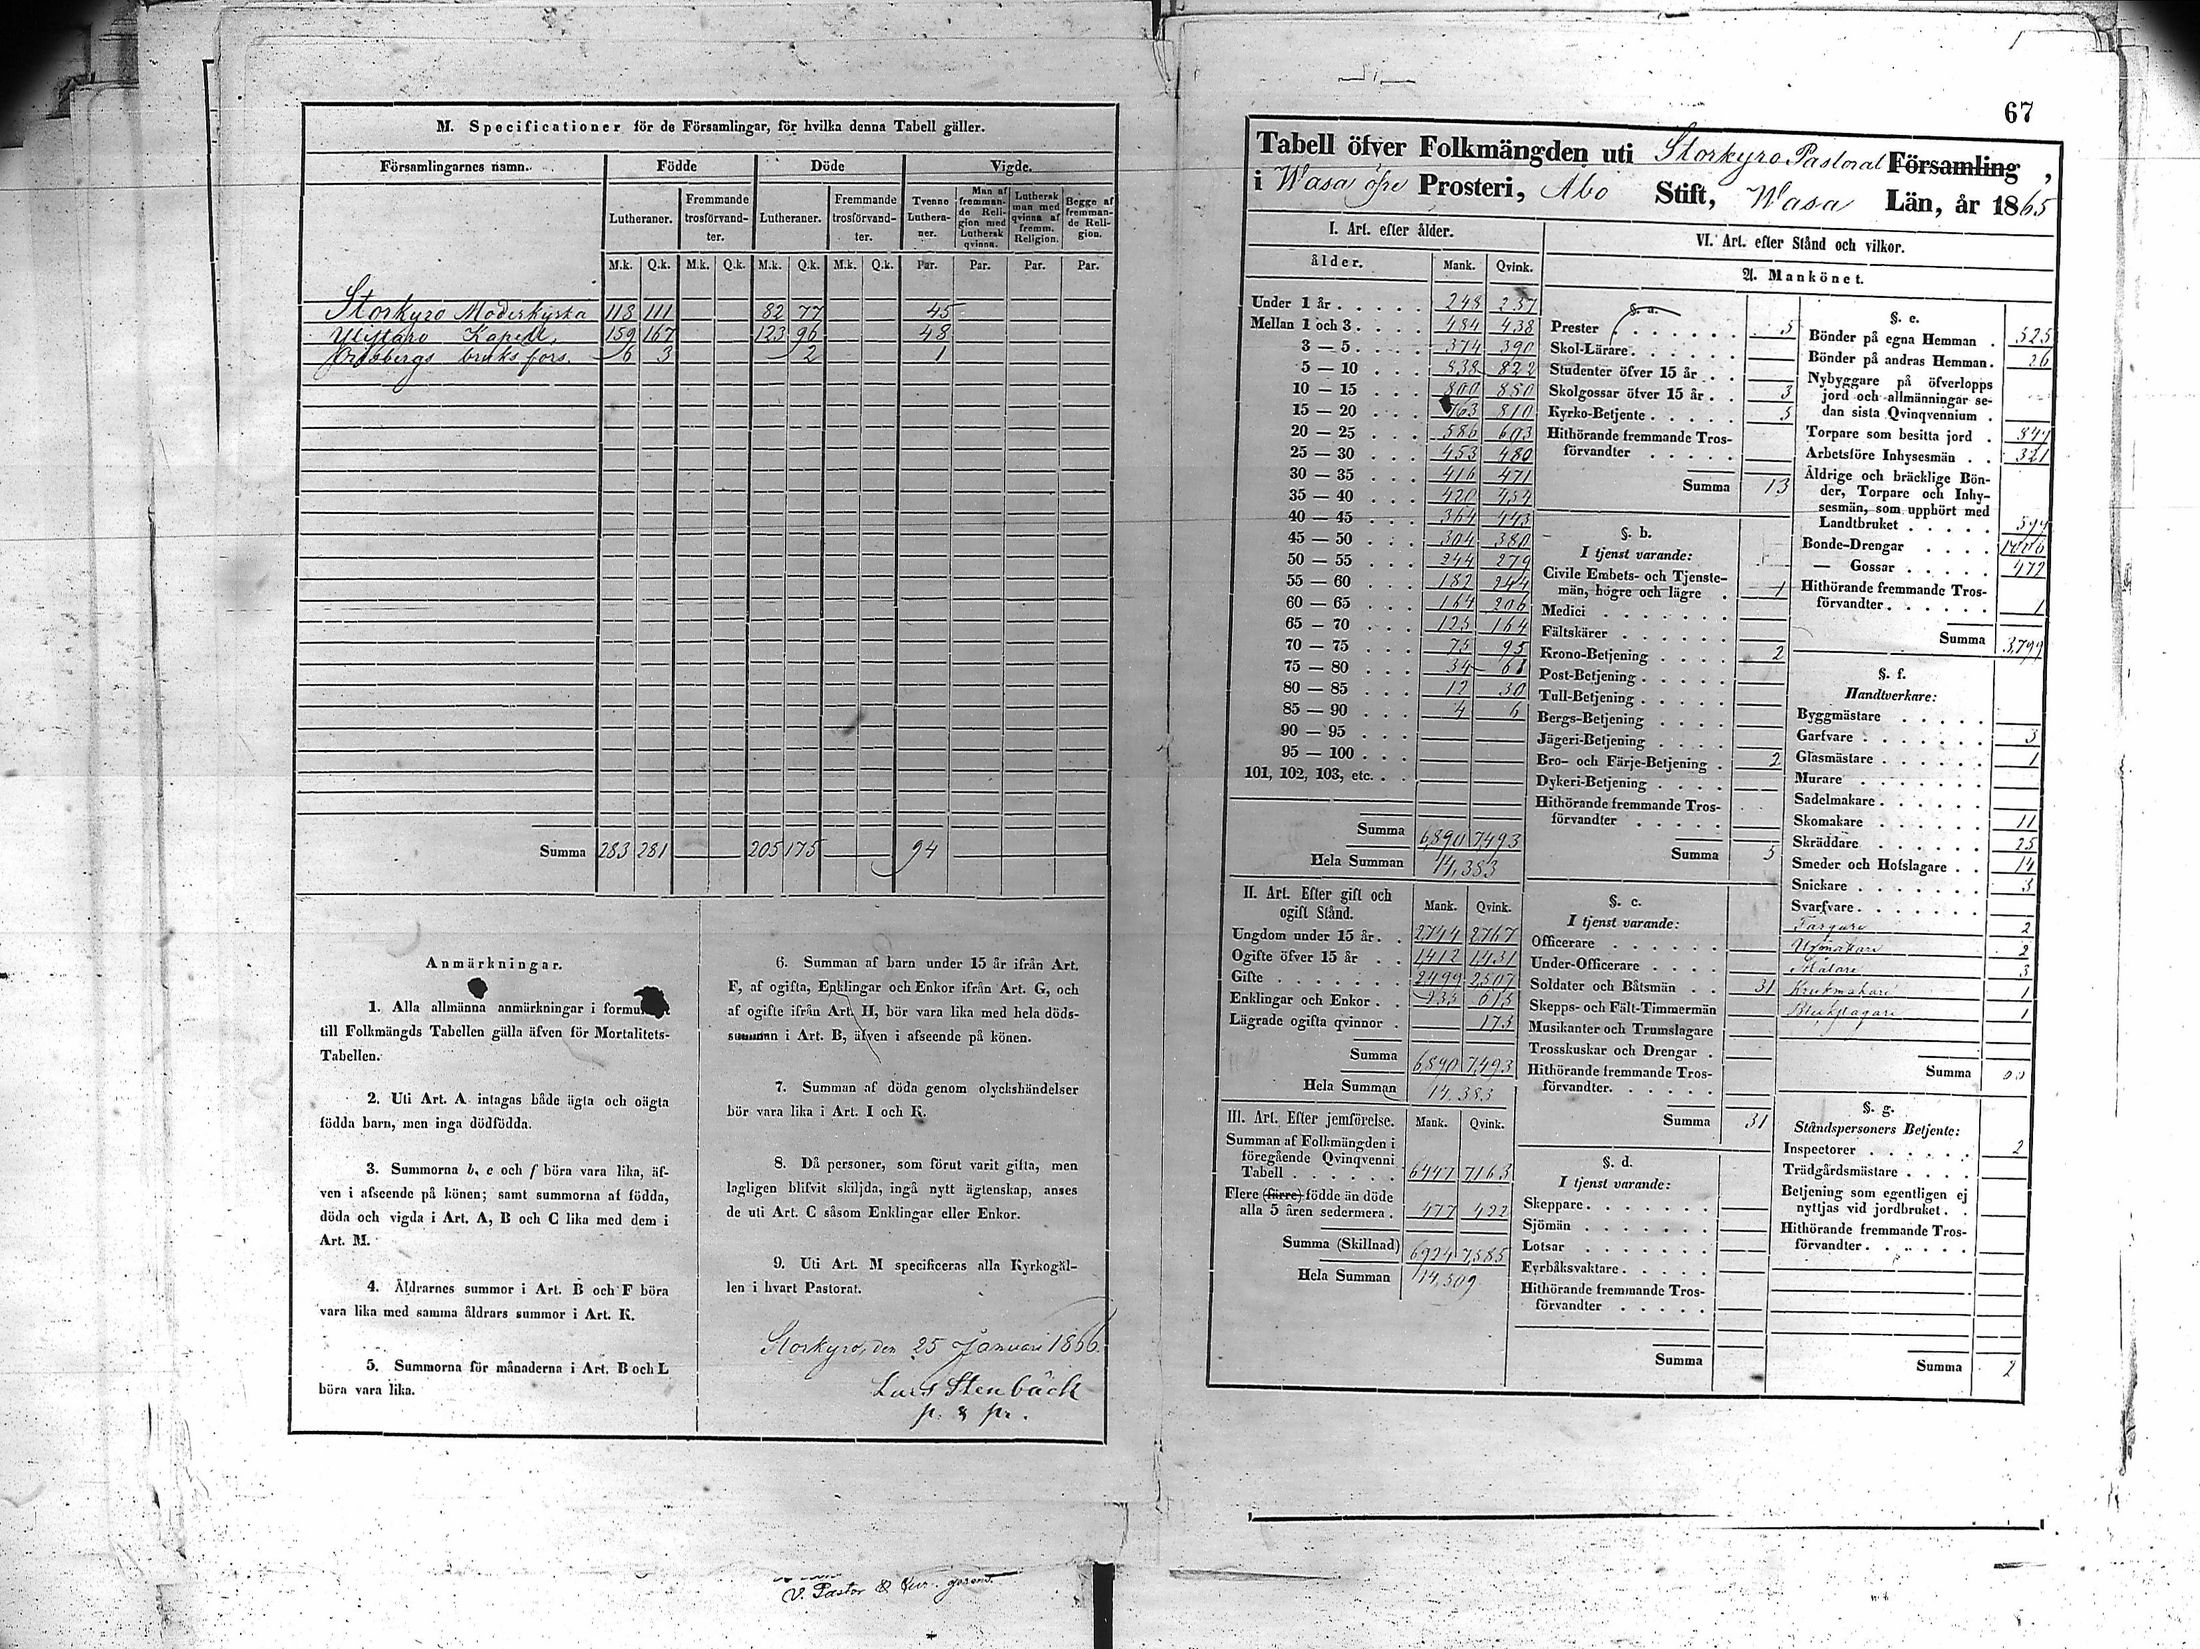 M. Specificationer för de Församlingar, för hvilka denna Tabell gäller.
Församlingarnes namn. Födde Döde Vigde.
Lutheraner. Fremmande trosförvandter. Lutheraner. Fremmande trosförvandter. Tvenne Lutheraner. Man af fremmande Religion med Luthersk qvinna. Luthersk man med qvinna af fremm. Religion. Begge af fremmande Religion.
M.k. Q.k. M.k. Q.k. M.k. Q.k. M.k. Q.k. Par. Par. Par. Par.
Storkyro Moderkyrka 118 111 82 77 45
Ylistaro Kapell 159 167 123 96 48
Orisbergs bruks förs. 6 3 2 1
Summa 283 281 205 175 94
Anmärkningar.
1. Alla allmänna anmärkningar i
till Folkmängds Tabellen gälla äfven för Mortalitets-
Tabellen.
2. Uti Art. A intagas både ägta och oägta
födda barn, men inga dödfödda.
3. Summorna b, e och f böra vara lika, äf-
ven i afseende på könen; samt summorna af födda,
döda och vigda i Art. A, B och C lika med dem i
Art. M.
4. Åldrarnes summor i Art. B och F böra
vara lika med samma åldrars summor i Art. K.
5. Summorna för månaderna i Art. B och L
böra vara lika.
6. Summan af barn under 15 år ifrån Art.
F, af ogifta, Enklingar och Enkor ifrån Art. G, och
af ogifte ifrån Art. H, bör vara lika med hela döds-
summan i Art. B, äfven i afseende på könen.
7. Summan af döda genom olyckshändelser
bör vara lika i Art. I och K.
8. Då personer, som förut varit gifta, men
lagligen blifvit skiljda, ingå nytt ägtenskap, anses
de uti Art. C såsom Enklingar eller Enkor.
9. Uti Art. M specificeras alla Kyrkogäl-
len i hvart Pastorat.
Storkyro, den 25 Januari 1866.
Lars Stenbäck
p. & pr.
V. Pastor &
67
Tabell öfver Folkmängden uti Storkyro Pastorat Församling,
i Wasa öfre Prosteri, Åbo Stift, Wasa Län, år 1865
I. Art. efter ålder.
ålder. Mank. Qvink.
Under 1 år 248 237
Mellan 1 och 3 484 438
3 — 5 374 390
5 — 10 838 822
10 — 15 800 850
15 — 20 763 810
20 — 25 586 603
25 — 30 453 480
30 — 35 416 471
35 — 40 420 454
40 — 45 364 443
45 — 50 304 380
50 — 55 244 279
55 — 60 182 244
60 — 65 164 206
65 — 70 125 164
70 — 75 75 95
75 — 80 34
80 — 85 12 30
85 — 90 4 6
90 — 95
95 — 100
101, 102, 103, etc.
Summa 6,890 7,493
Hela Summan 14,383
II. Art. Efter gift och ogift Stånd. Mank. Qvink.
Ungdom under 15 år 2744 2767
Ogifte öfver 15 år 1412 1431
Gifte 2499 2507
Enklingar och Enkor 235 615
Lägrade ogifta qvinnor 173
Summa 6890 7,493
Hela Summan 14,383
III. Art. Efter jemförelse. Mank. Qvink.
Summan af Folkmängden i
föregående Qvinqvenni
Tabell 6447 7163
Flere (färre) födde än döde
alla 5 åren sedermera 477 422
Summa (Skillnad) 6924 7,585
Hela Summan 14,509
VI. Art. efter Stånd och vilkor.
A. Mankönet.
§. a.
Prester 5
Skol-Lärare
Studenter öfver 15 år
Skolgossar öfver 15 år 3
Kyrko-Betjente 5
Hithörande fremmande Tros-
förvandter
Summa 13
§. b.
I tjenst varande:
Civile Embets- och Tjenste-
män, högre och lägre 1
Medici
Fältskärer
Krono-Betjening 2
Post-Betjening
Tull-Betjening
Bergs-Betjening
Jägeri-Betjening
Bro- och Färje-Betjening 2
Dykeri-Betjening
Hithörande fremmande Tros-
förvandter
Summa 5
§. c.
I tjenst varande:
Officerare
Under-Officerare
Soldater och Båtsmän 31
Skepps- och Fält-Timmermän
Musikanter och Trumslagare
Trosskuskar och Drengar
Hithörande fremmande Tros-
förvandter
Summa 31
§. d.
I tjenst varande:
Skeppare
Sjömän
Lotsar
Fyrbåksvaktare
Hithörande fremmande Tros-
förvandter
Summa
§. e.
Bönder på egna Hemman 525
Bönder på andras Hemman 26
Nybyggare på öfverlopps
jord och allmänningar se-
dan sista Qvinqvennium
Torpare som besitta jord
Arbetsföre Inhysesmän 321
Åldrige och bräcklige Bön-
der, Torpare och Inhy-
sesmän, som upphört med
Landtbruket
Bonde-Drengar
— Gossar 472
Hithörande fremmande Tros-
förvandter 1
Summa 3,799
§. f.
Handtverkare:
Byggmästare
Garfvare 3
Glasmästare 1
Murare
Sadelmakare
Skomakare 11
Skräddare 25
Smeder och Hofslagare 14
Snickare 3
Svarfvare
Färgare 2
Urmakare 2
Målare 3
Krukmakare 1
Bleckslagare 1
Summa
§. g.
Ståndspersoners Betjente:
Inspectorer 2
Trädgårdsmästare
Betjening som egentligen ej
nyttjas vid jordbruket
Hithörande fremmande Tros-
förvandter
Summa 2